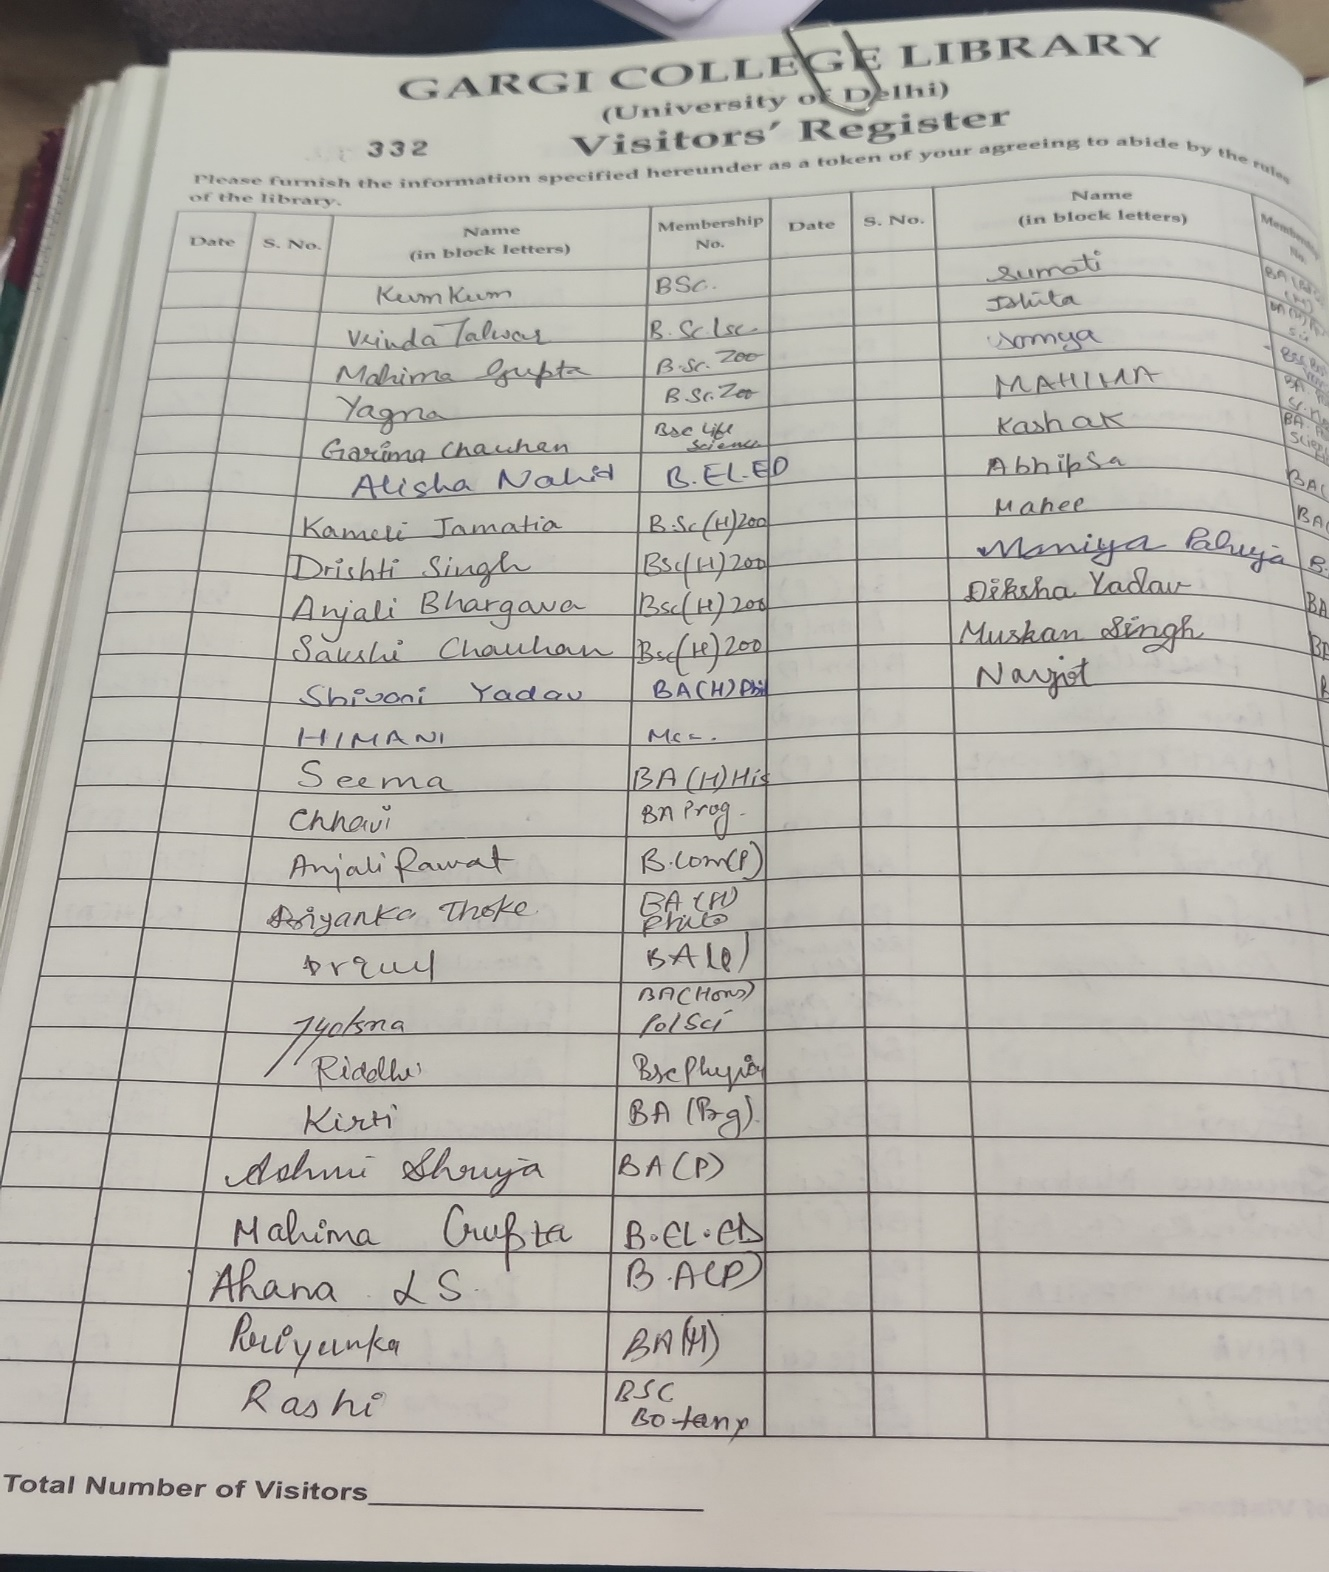 GARGI COLLEGE LIBRARY
(University of Delhi)
332 Visitors' Register
Please furnish the information specified hereunder as a token of your agreeing to abide by the rules
of the library.
Date S. No. Name (in block letters) Membership No. Date S. No. Name (in block letters)
KumKum BSc. Sumati
Vrinda Talwar B.Sc.lsc. Ishita
Mahima Gupta B.Sc. Zoo Somya
Yagna B.Sc. Zoo MAHIMA
Garima Chauhan Bsc Life Science Kashak
Alisha Nahid B.EL.ED Abhipsa
Kameli Jamatia B.Sc(H)Zoo Mahee
Drishti Singh Bsc(H)Zoo Maniya Pahuja
Anjali Bhargava Bsc(H)Zoo Diksha Yadav
Sakshi Chauhan Bsc(H)Zoo Muskan Singh
Shivani Yadav BA(H) Phil Navjot
HIMANI
Seema BA(H)His
Chhavi BA Prog.
Anjali Rawat B.Com(P)
Priyanka Thoke BA(H) Philo
BA(P)
Jyotsna BA(Hons) Pol Sci
Riddhi Bsc Physics
Kirti BA (Prg).
Ashmi Shruja BA(P)
Mahima Gupta B.EL.ED
Ahana L S. B.A(P)
Priyanka BA(H)
Rashi BSC Botany
Total Number of Visitors